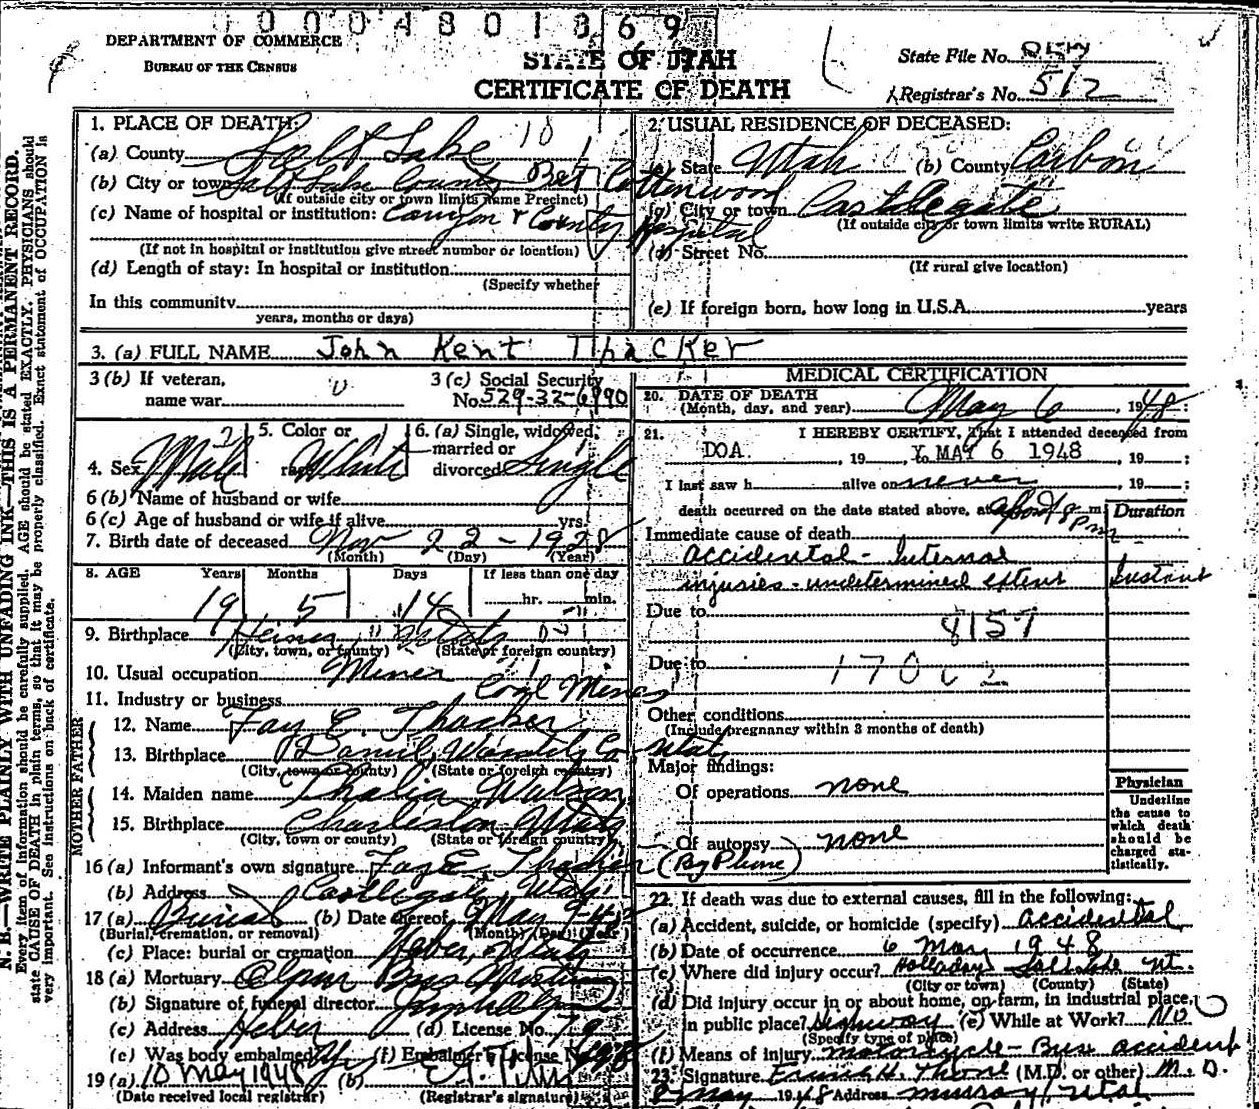 0 0 0 4 8 0 1 8 6 9
DEPARTMENT OF COMMERCE
BUREAU OF THE CENSUS
STATE OF UTAH
CERTIFICATE OF DEATH
State File No.
Registrar's No. 512
N. B.—WRITE PLAINLY WITH UNFADING INK—THIS IS A PERMANENT RECORD.
Every item of information should be carefully supplied. AGE should be stated EXACTLY. PHYSICIANS should
state CAUSE OF DEATH in plain terms, so that it may be properly classified. Exact statement of OCCUPATION is
very important. See instructions on back of certificate.
1. PLACE OF DEATH: 10
(a) County Salt Lake
(b) City or town Salt Lake County Bet Cottonwood
(If outside city or town limits name Precinct)
(c) Name of hospital or institution: Canyon & County Hospital
(If not in hospital or institution give street number or location)
(d) Length of stay: In hospital or institution
(Specify whether
In this community
years, months or days)
2. USUAL RESIDENCE OF DECEASED:
(a) State Utah (b) County Carbon
(c) City or town Castlegate
(If outside city or town limits write RURAL)
(d) Street No.
(If rural give location)
(e) If foreign born, how long in U.S.A. years
3. (a) FULL NAME John Kent Thacker
3 (b) If veteran,
name war
3 (c) Social Security
No. 529-32-6990
4. Sex Male 5. Color or race White 6. (a) Single, widowed, married or divorced Single
6 (b) Name of husband or wife
6 (c) Age of husband or wife if alive yrs.
7. Birth date of deceased Nov 22 - 1928
(Month) (Day) (Year)
8. AGE Years Months Days If less than one day
19 5 14 hr. min.
9. Birthplace Heiner, Utah
(City, town, or county) (State or foreign country)
10. Usual occupation Miner
11. Industry or business Coal Mines
FATHER
12. Name Fay E. Thacker
13. Birthplace Daniel, Wasatch Co Utah
(City, town or county) (State or foreign country)
MOTHER
14. Maiden name Thalia Watson
15. Birthplace Charleston, Utah
(City, town or county) (State or foreign country)
16 (a) Informant's own signature Fay E. Thacker (By Phone)
(b) Address Castlegate, Utah
17 (a) Burial (b) Date thereof May 9-48
(Burial, cremation, or removal) (Month) (Day) (Year)
(c) Place: burial or cremation Heber, Utah
18 (a) Mortuary Olpin Bros Mortuary
(b) Signature of funeral director
(c) Address Heber (d) License No.
(e) Was body embalmed? Yes (f) Embalmer's License No.
19 (a) 10 May 1948 (b)
(Date received local registrar) (Registrar's signature)
MEDICAL CERTIFICATION
20. DATE OF DEATH
(Month, day, and year) May 6, 1948
21. I HEREBY CERTIFY, That I attended deceased from
DOA., 19 to MAY 6 1948, 19 ;
I last saw h alive on never, 19 ;
death occurred on the date stated above, at about 8 pm m.
Duration
Immediate cause of death
accidental - Internal
injuries - undetermined extent Instant
Due to 8157
Due to 170
Other conditions
(Include pregnancy within 3 months of death)
Major findings:
Of operations none
Of autopsy none
Physician
Underline
the cause to
which death
should be
charged sta-
tistically.
22. If death was due to external causes, fill in the following:
(a) Accident, suicide, or homicide (specify) accidental
(b) Date of occurrence 6 May 1948
(c) Where did injury occur? Holladay Salt Lake Ut.
(City or town) (County) (State)
(d) Did injury occur in or about home, on farm, in industrial place,
in public place? Highway (e) While at Work? NO
(Specify type of place)
(f) Means of injury motorcycle - Bus accident
23. Signature (M.D. or other) M. D.
8 May 1948 Address Murray, Utah